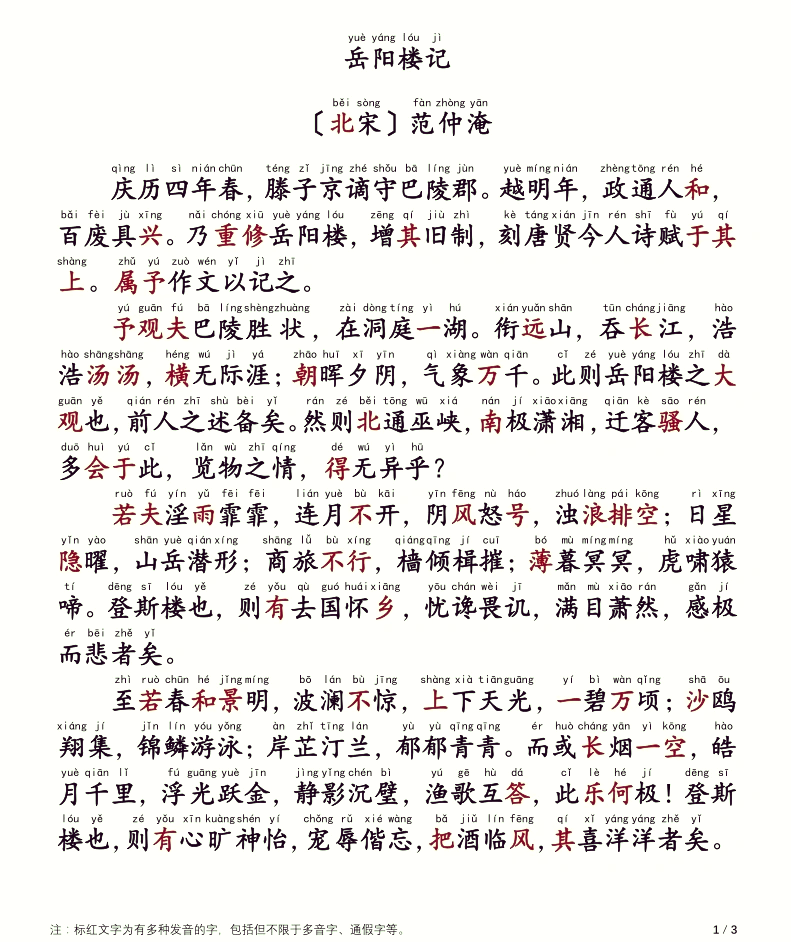 yuè yáng lóu jì
岳阳楼记
běi sòng fàn zhòng yān
〔北宋〕范仲淹
qìng lì sì nián chūn téng zǐ jīng zhé shǒu bā líng jùn yuè míng nián zhèng tōng rén hé
庆历四年春，滕子京谪守巴陵郡。越明年，政通人和，
bǎi fèi jù xīng nǎi chóng xiū yuè yáng lóu zēng qí jiù zhì kè táng xián jīn rén shī fù yú qí
百废具兴。乃重修岳阳楼，增其旧制，刻唐贤今人诗赋于其
shàng zhǔ yú zuò wén yǐ jì zhī
上。属予作文以记之。
yú guān fú bā líng shèng zhuàng zài dòng tíng yì hú xián yuǎn shān tūn cháng jiāng hào
予观夫巴陵胜状，在洞庭一湖。衔远山，吞长江，浩
hào shāng shāng héng wú jì yá zhāo huī xī yīn qì xiàng wàn qiān cǐ zé yuè yáng lóu zhī dà
浩汤汤，横无际涯；朝晖夕阴，气象万千。此则岳阳楼之大
guān yě qián rén zhī shù bèi yǐ rán zé běi tōng wū xiá nán jí xiāo xiāng qiān kè sāo rén
观也，前人之述备矣。然则北通巫峡，南极潇湘，迁客骚人，
duō huì yú cǐ lǎn wù zhī qíng dé wú yì hū
多会于此，览物之情，得无异乎？
ruò fú yín yǔ fēi fēi lián yuè bù kāi yīn fēng nù háo zhuó làng pái kōng rì xīng
若夫淫雨霏霏，连月不开，阴风怒号，浊浪排空；日星
yǐn yào shān yuè qián xíng shāng lǚ bù xíng qiáng qīng jí cuī bó mù míng míng hǔ xiào yuán
隐曜，山岳潜形；商旅不行，樯倾楫摧；薄暮冥冥，虎啸猿
tí dēng sī lóu yě zé yǒu qù guó huái xiāng yōu chán wèi jī mǎn mù xiāo rán gǎn jí
啼。登斯楼也，则有去国怀乡，忧谗畏讥，满目萧然，感极
ér bēi zhě yǐ
而悲者矣。
zhì ruò chūn hé jǐng míng bō lán bù jīng shàng xià tiān guāng yí bì wàn qǐng shā ōu
至若春和景明，波澜不惊，上下天光，一碧万顷；沙鸥
xiáng jí jǐn lín yóu yǒng àn zhǐ tīng lán yù yù qīng qīng ér huò cháng yān yì kōng hào
翔集，锦鳞游泳；岸芷汀兰，郁郁青青。而或长烟一空，皓
yuè qiān lǐ fú guāng yuè jīn jìng yǐng chén bì yú gē hù dá cǐ lè hé jí dēng sī
月千里，浮光跃金，静影沉璧，渔歌互答，此乐何极！登斯
lóu yě zé yǒu xīn kuàng shén yí chǒng rǔ xié wàng bǎ jiǔ lín fēng qí xǐ yáng yáng zhě yǐ
楼也，则有心旷神怡，宠辱偕忘，把酒临风，其喜洋洋者矣。
注：标红文字为有多种发音的字，包括但不限于多音字、通假字等。 1 / 3